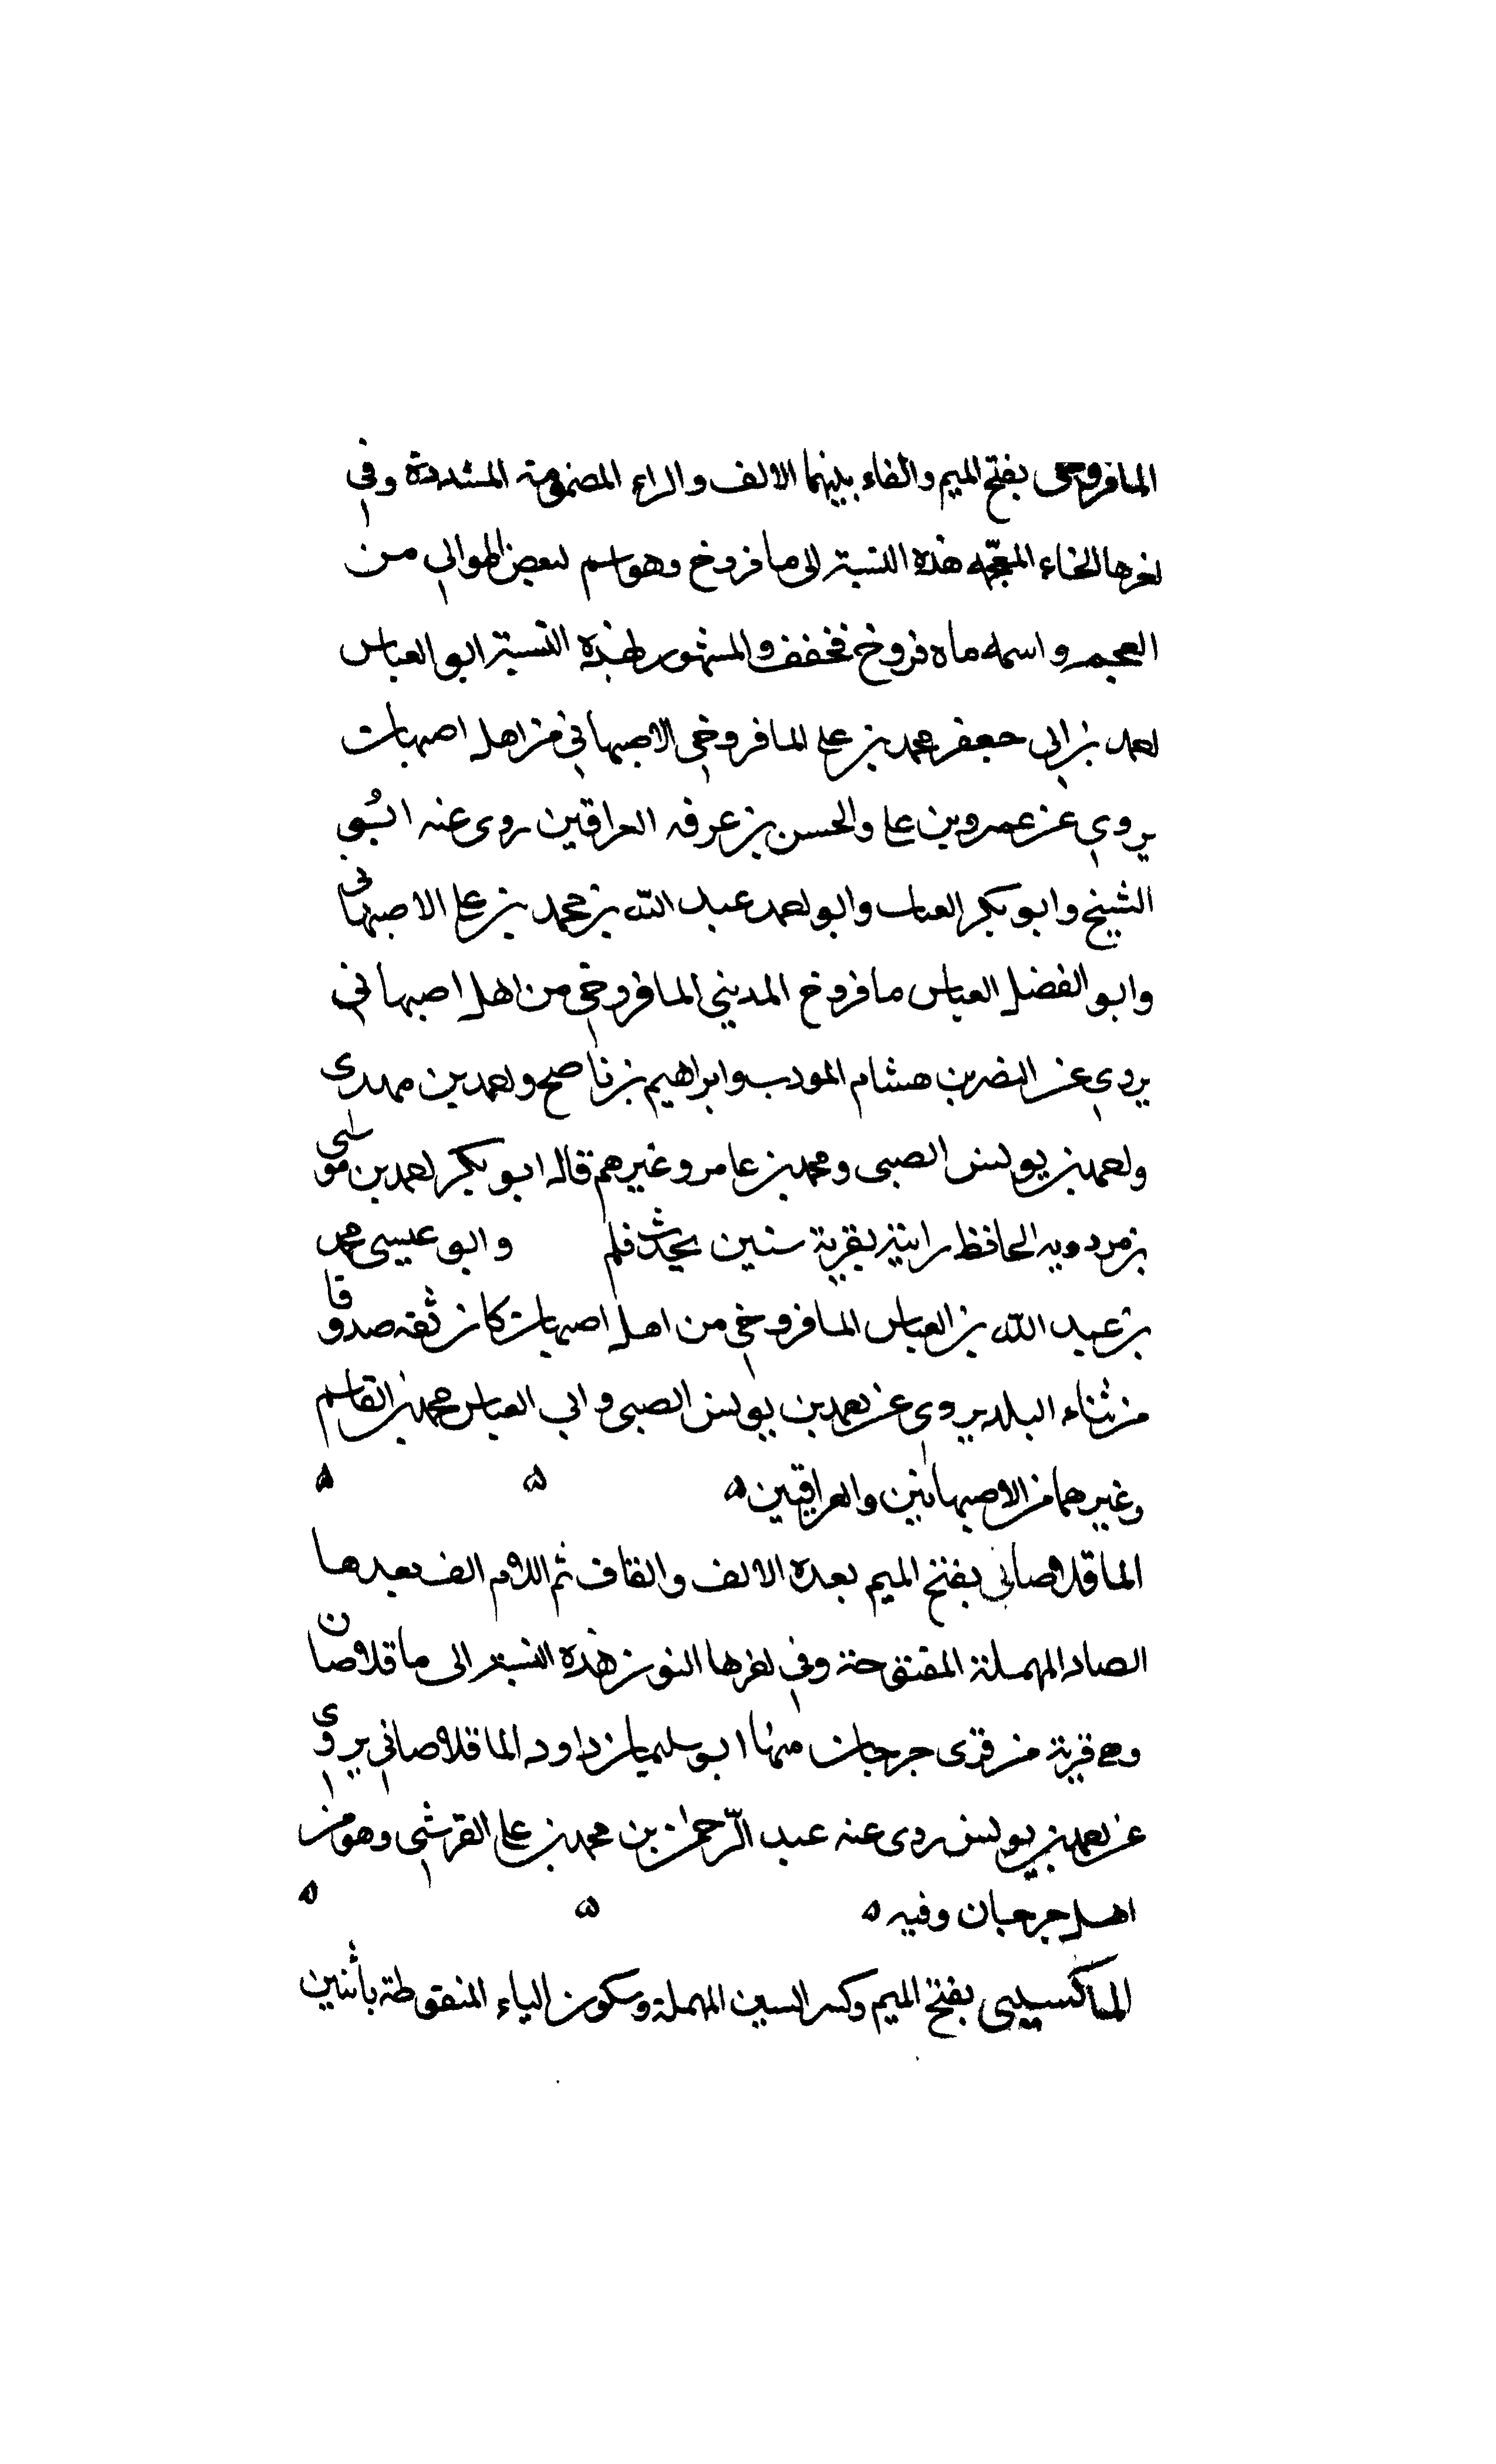 المافروخى بفتح الميم والفاء بينهما الالف والراء المضمومة المشددة وفي
اخرها الخاء المعجمة هذه النسبة الى مافروخ وهو اسم لبعض الموالي من
العجم واسمه ماه فروخ فخفف والمشهور بهذه النسبة ابو العباس
احمد بن ابي جعفر محمد بن علي المافروخي الاصبهاني من اهل اصبهان
يروي عن عمرو بن علي والحسن بن عرفه العراقين روى عنه ابو
الشيخ وابو بكر القباب وابو احمد عبد الله بن محمد بن علي الاصبهاني
وابو الفضل العباس مافروخ المديني المافروخي من اهل اصبهاني
يروي عن النضر بن هشام المودب وابراهيم بن ناصح واحمد بن مهدي
واحمد بن يونس الضبي ومحمد بن عامر وغيرهم قاله ابو بكر احمد بن موسى
بن مردويه الحافظ رايته بقرية سنين يحدث فلم وابو عيسى محمد
بن عبد الله بن العباس المافروخي من اهل اصبهان كان ثقه صدوقا
من تناء البلد يروي عن احمد بن يونس الضبي وابي العباس محمد بن القاسم
وغيرهما من الاصبهانين والعراقيين ه ه ه
الماقلاصاني بفتح الميم بعده الالف والقاف ثم اللام الف بعدها
الصاد المهملة المفتوحة وفي اخرها النون هذه النسبة الى ماقلاصان
وهي قرية من قرى جرجان منها ابو سليمان داود الماقلاصاني يروي
عن احمد بن يونس روى عنه عبد الرحمن بن محمد بن علي القرشي وهو من
اهل جرجان وفيه ه ه ه
الماكسيني بفتح الميم وكسر السين المهملة وسكون الياء المنقوطة باثنين